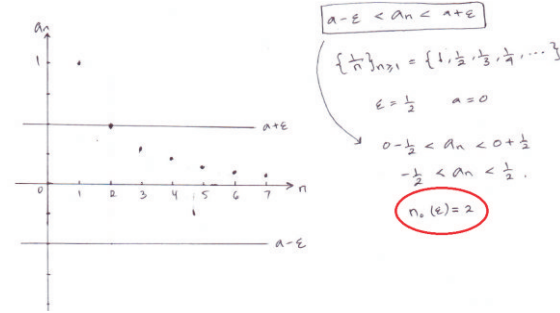 aₙ
1
a+ε
0 1 2 3 4 5 6 7 n
a-ε
a-ε < aₙ < a+ε
{1/n}ₙ≥₁ = {1, 1/2, 1/3, 1/4, ...}
ε = 1/2 a=0
0-1/2 < aₙ < 0+1/2
-1/2 < aₙ < 1/2.
n₀(ε)=2